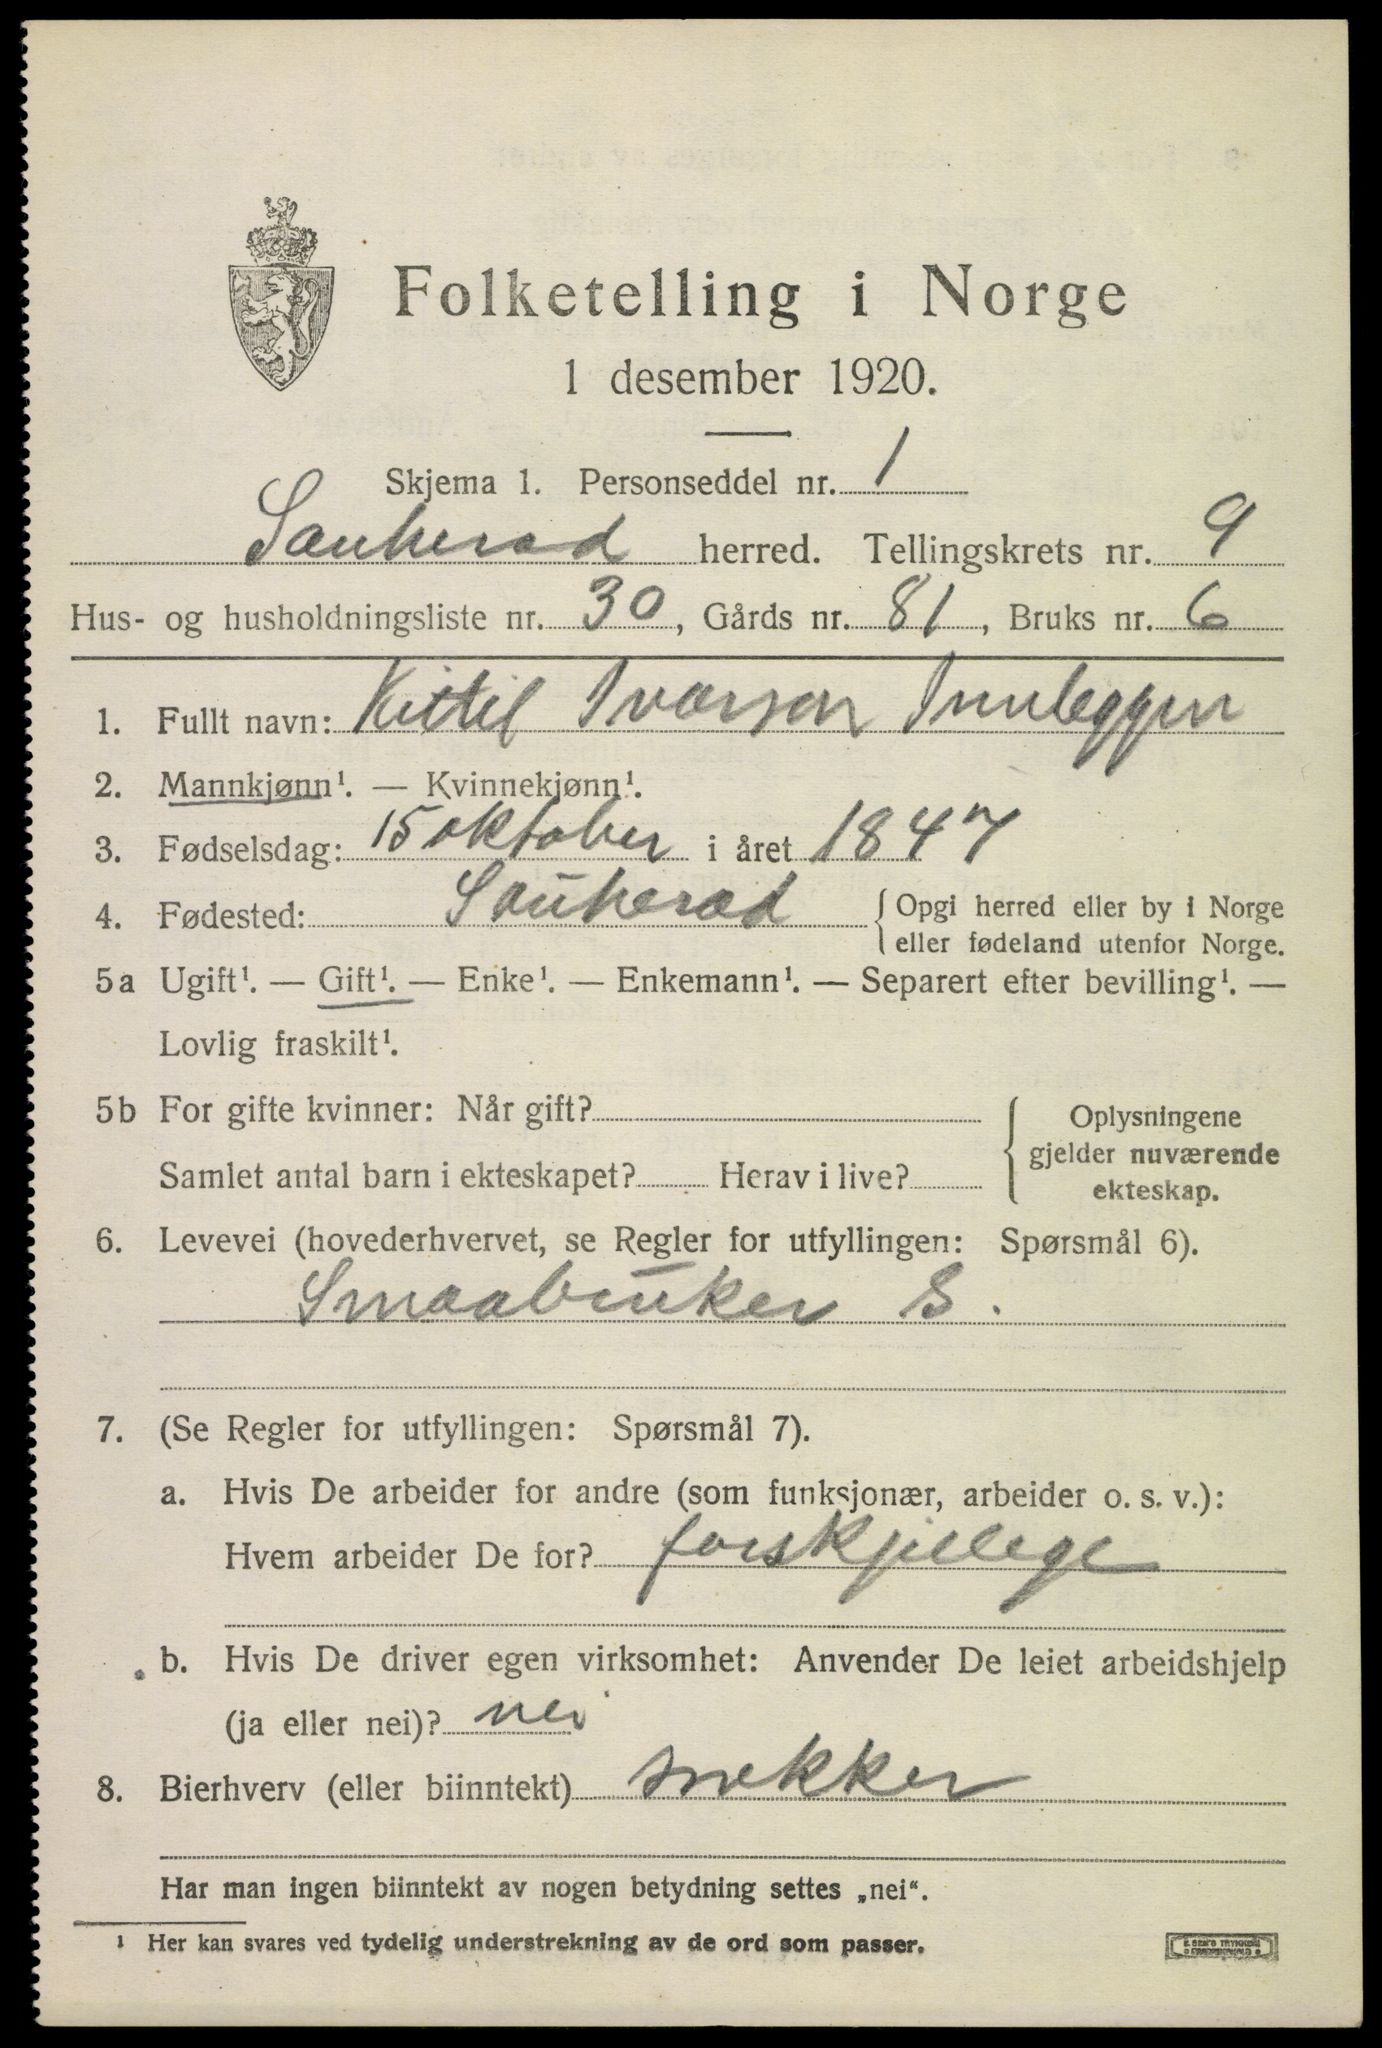 Folketelling i Norge
1 desember 1920.
Skjema 1. Personseddel nr. 1
Sauherad herred. Tellingskrets nr. 9
Hus- og husholdningsliste nr. 30, Gårds nr. 81, Bruks nr. 6
1. Fullt navn: Kittil Ivarson Innleggen
2. Mannkjønn¹. — Kvinnekjønn¹.
3. Fødselsdag: 15 oktober i året 1847
4. Fødested: Sauherad {Opgi herred eller by i Norge
eller fødeland utenfor Norge.
5a Ugift¹. — Gift¹. — Enke¹. — Enkemann¹. — Separert efter bevilling¹. —
Lovlig fraskilt¹.
5b For gifte kvinner: Når gift?
Samlet antal barn i ekteskapet? Herav i live?
Oplysningene
gjelder nuværende
ekteskap.
6. Levevei (hovederhvervet, se Regler for utfyllingen: Spørsmål 6).
Smaabruker S.
7. (Se Regler for utfyllingen: Spørsmål 7).
a. Hvis De arbeider for andre (som funksjonær, arbeider o. s. v.):
Hvem arbeider De for? forskjellege
b. Hvis De driver egen virksomhet: Anvender De leiet arbeidshjelp
(ja eller nei)? nei
8. Bierhverv (eller biinntekt) snekker
Har man ingen biinntekt av nogen betydning settes „nei“.
¹ Her kan svares ved tydelig understrekning av de ord som passer.